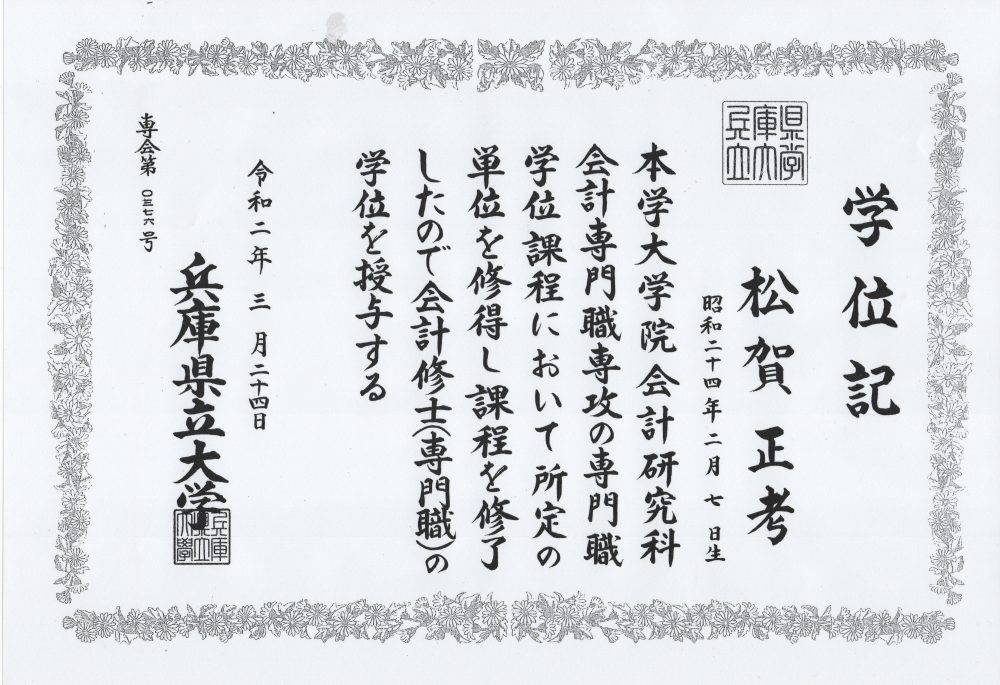 学位記
松賀正考
昭和二十四年二月七日生
本学大学院会計研究科
会計専門職専攻の専門職
学位課程において所定の
単位を修得し課程を修了
したので会計修士(専門職)の
学位を授与する
令和二年三月二十四日
兵庫県立大学
専会第〇三七六号